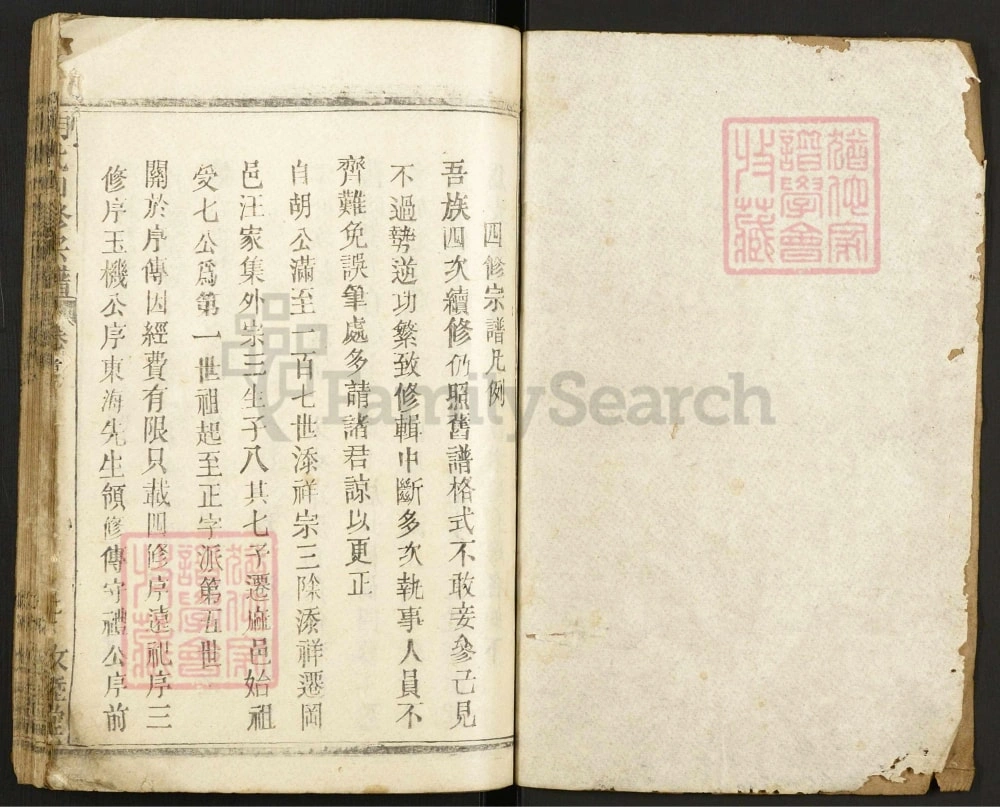 四修宗譜凡例
吾族四次續修仍照舊譜格式不敢妄參己見
不過勢逆功繁致修輯中斷多次執事人員不
齊難免誤筆處多請諸君諒以更正
自胡公滿至一百七世添祥宗三除添祥遷岡
邑汪家集外宗三生子八其七子遷邑始祖
受七公爲第一世祖起至正字派第五世
關於序傳因經費有限只載四修序遠祀序三
修序玉機公序東海先生領修傳守禮公序前
譜學會
譜學會
FamilySearch